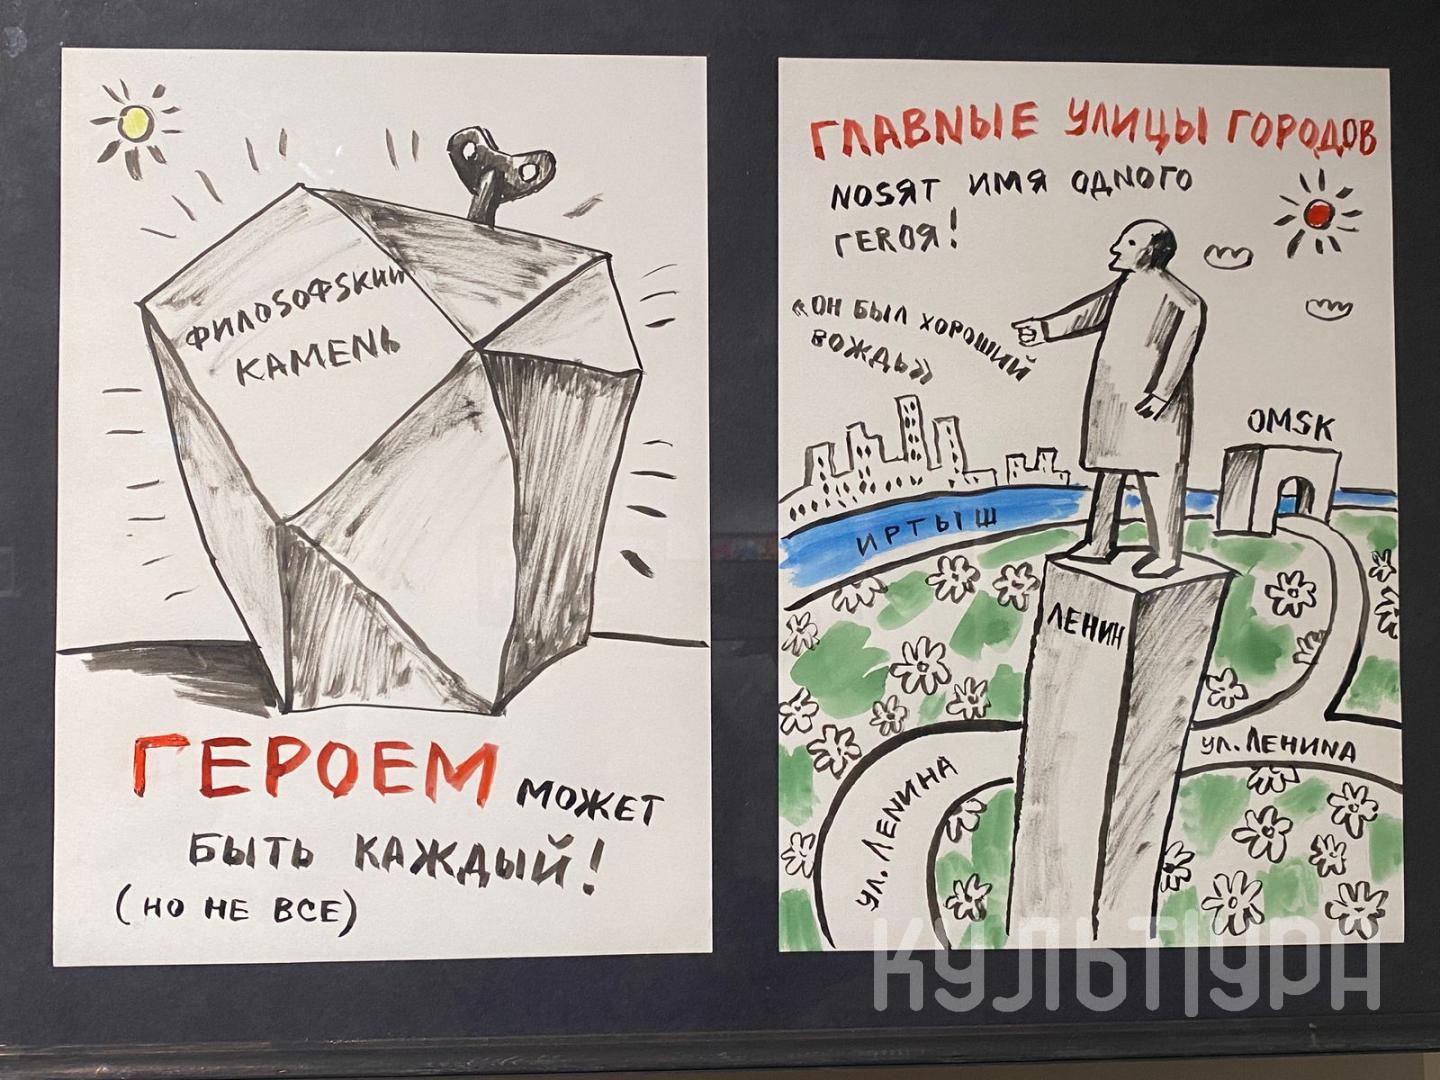 ФИЛОSОФSКИЙ
КАМЕNЬ
ГЕРОЕМ МОЖЕТ
БЫТЬ КАЖДЫЙ!
(НО НЕ ВСЕ)
ГЛАВNЫЕ УЛИЦЫ ГОРОДОВ
NОSЯТ ИМЯ ОДNОГО
ГЕRОЯ!
«ОН БЫЛ ХОРОШИЙ
ВОЖДЬ»
OMSK
ИРТЫШ
ЛЕНИН
УЛ. ЛЕНИNА
УЛ. ЛЕNИНА
КУЛЬТУРА